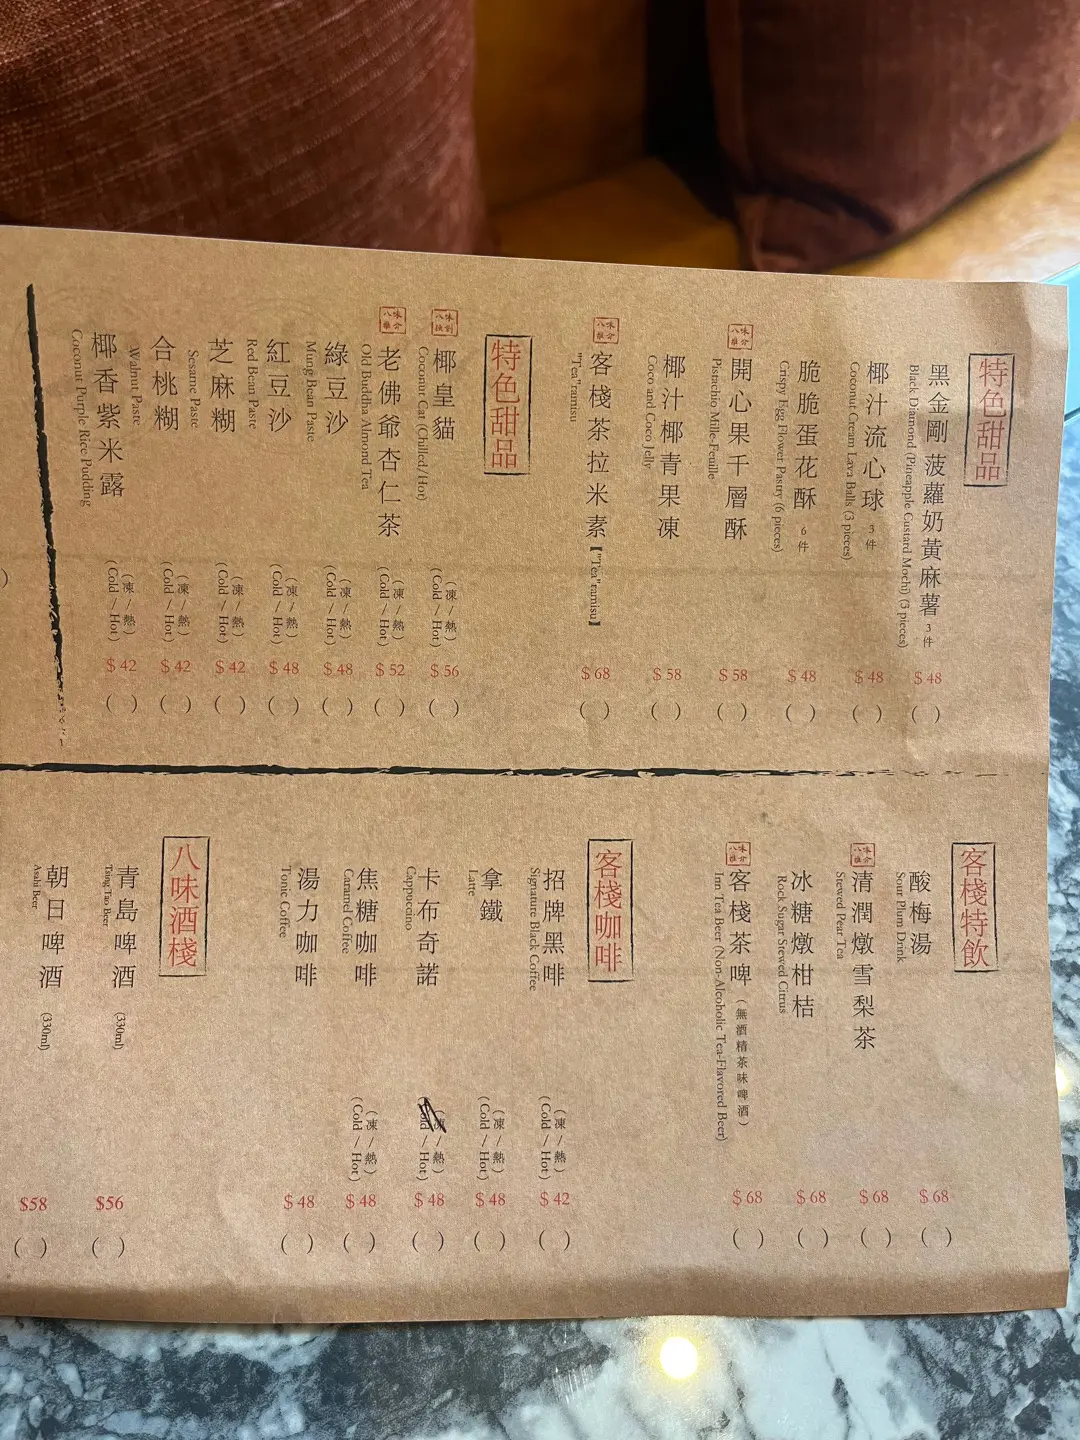 特色甜品
黑金剛菠蘿奶黃麻薯 3件
Black Diamond (Pineapple Custard Mochi) (3 pieces)
$ 48
( )
椰汁流心球 3件
Coconut Cream Lava Balls (3 pieces)
$ 48
( )
脆脆蛋花酥 6件
Crispy Egg Flower Pastry (6 pieces)
$ 48
( )
八味推介
開心果千層酥
Pistachio Mille-Feuille
$ 58
( )
椰汁椰青果凍
Coco and Coco Jelly
$ 58
( )
八味推介
客棧茶拉米素【"Tea"ramisu】
"Tea"ramisu
$ 68
( )
特色甜品
椰皇貓 (凍/熱)
Coconut Cat (Chilled/Hot) (Cold / Hot)
$ 56
( )
八味推介
老佛爺杏仁茶 (凍/熱)
Old Buddha Almond Tea (Cold / Hot)
$ 52
( )
綠豆沙 (凍/熱)
Mung Bean Paste (Cold / Hot)
$ 48
( )
紅豆沙 (凍/熱)
Red Bean Paste (Cold / Hot)
$ 48
( )
芝麻糊 (凍/熱)
Sesame Paste (Cold / Hot)
$ 42
( )
合桃糊 (凍/熱)
Walnut Paste (Cold / Hot)
$ 42
( )
椰香紫米露 (凍/熱)
Coconut Purple Rice Pudding (Cold / Hot)
$ 42
( )
客棧特飲
酸梅湯
Sour Plum Drink
$ 68
( )
八味推介
清潤燉雪梨茶
Stewed Pear Tea
$ 68
( )
冰糖燉柑桔
Rock Sugar Stewed Citrus
$ 68
( )
八味推介
客棧茶啤 (無酒精茶味啤酒)
Inn Tea Beer (Non-Alcoholic Tea-Flavored Beer)
$ 68
( )
客棧咖啡
招牌黑啡 (凍/熱)
Signature Black Coffee (Cold / Hot)
$ 42
( )
拿鐵 (凍/熱)
Latte (Cold / Hot)
$ 48
( )
卡布奇諾 (凍/熱)
Cappuccino (Cold / Hot)
$ 48
( )
焦糖咖啡 (凍/熱)
Caramel Coffee (Cold / Hot)
$ 48
( )
湯力咖啡
Tonic Coffee
$ 48
( )
八味酒棧
青島啤酒 (330ml)
Tsing Tao Beer
$56
( )
朝日啤酒 (330ml)
Asahi Beer
$58
( )